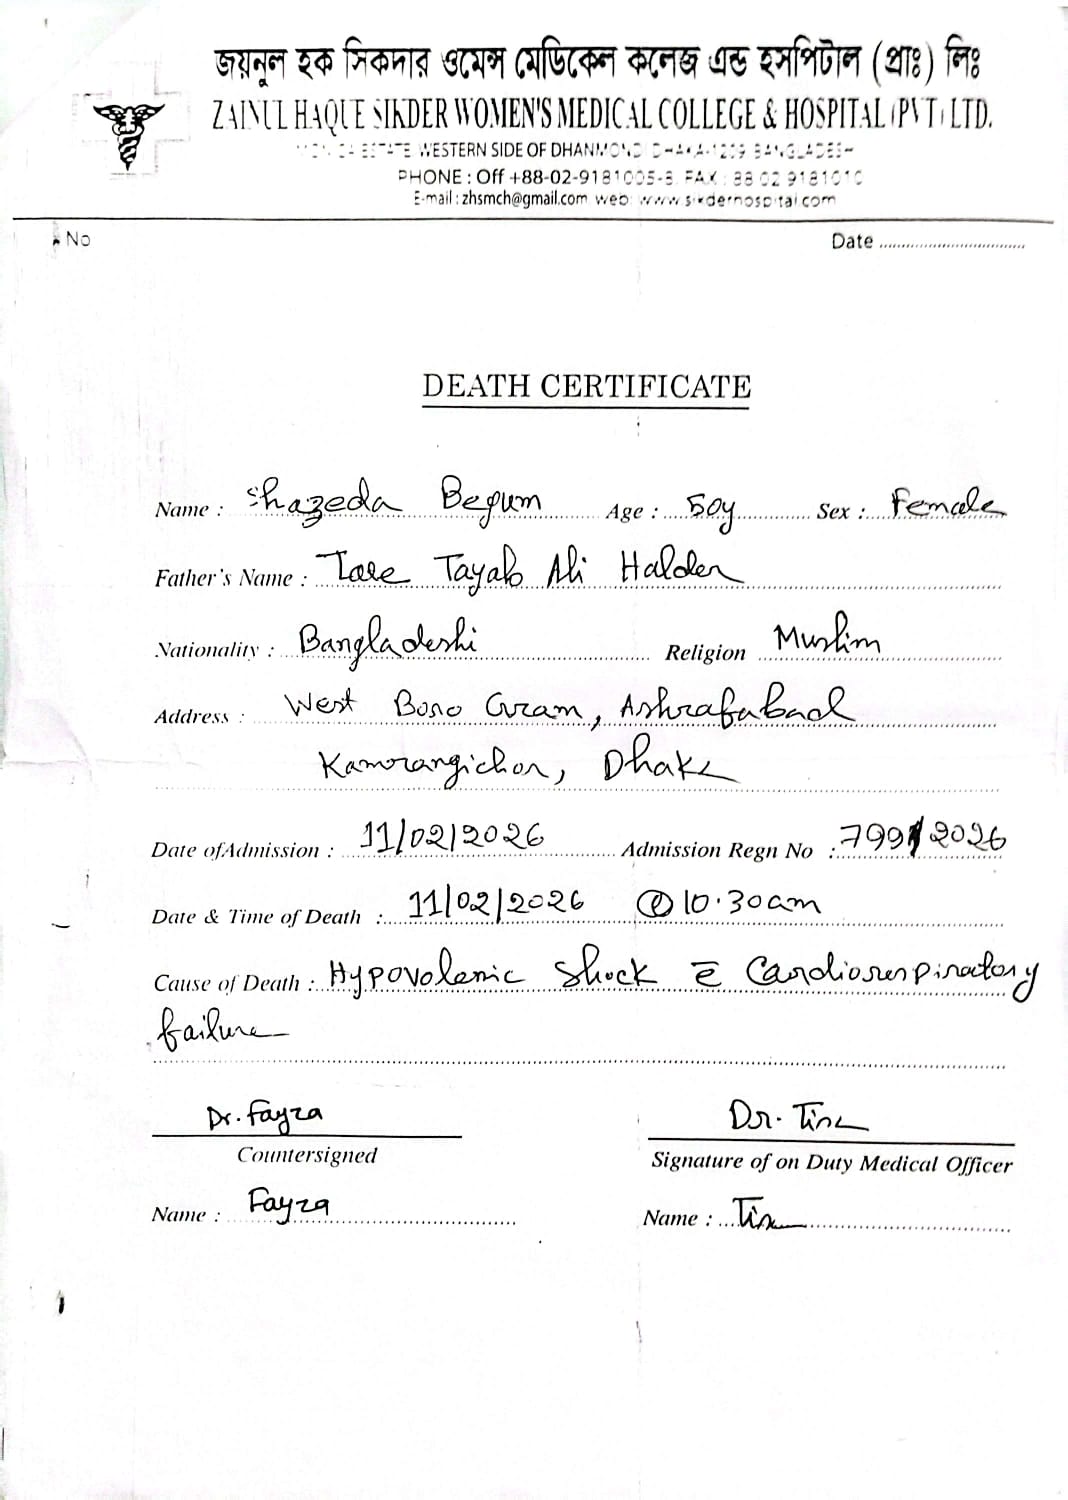 জয়নুল হক সিকদার ওমেন্স মেডিকেল কলেজ এন্ড হসপিটাল (প্রাঃ) লিঃ
ZAINUL HAQUE SIKDER WOMEN'S MEDICAL COLLEGE & HOSPITAL (PVT) LTD.
MONICA ESTATE, WESTERN SIDE OF DHANMONDI, DHAKA-1209, BANGLADESH
PHONE : Off +88-02-9181005-8, FAX : 88 02 9181010
E-mail : zhsmch@gmail.com web: www.sikderhospital.com
No
Date
DEATH CERTIFICATE
Name : Shazeda Begum Age : 50y Sex : Female
Father's Name : Tayab Ali Halder
Nationality : Bangladeshi Religion Muslim
Address : West Boro Gram, Ashrafabad
Kamrangichor, Dhaka
Date of Admission : 11/02/2026 Admission Regn No : 799/2026
Date & Time of Death : 11/02/2026 @ 10.30am
Cause of Death : Hypovolemic Shock c̄ Cardiorespiratory
failure
Dr. Fayza Dr. Tina
Countersigned Signature of on Duty Medical Officer
Name : Fayza Name : Tina